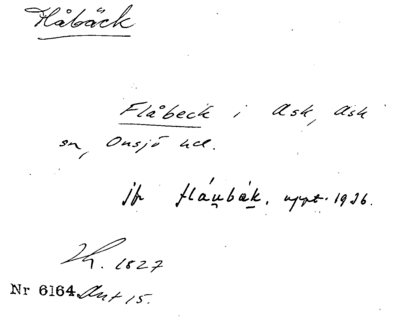 Flåbäck
Flåbeck i Ask, Ask
sn, Onsjö hd.
jfr fláubák, uppt. 1926.
1827
Nr 6164 Ant 15.